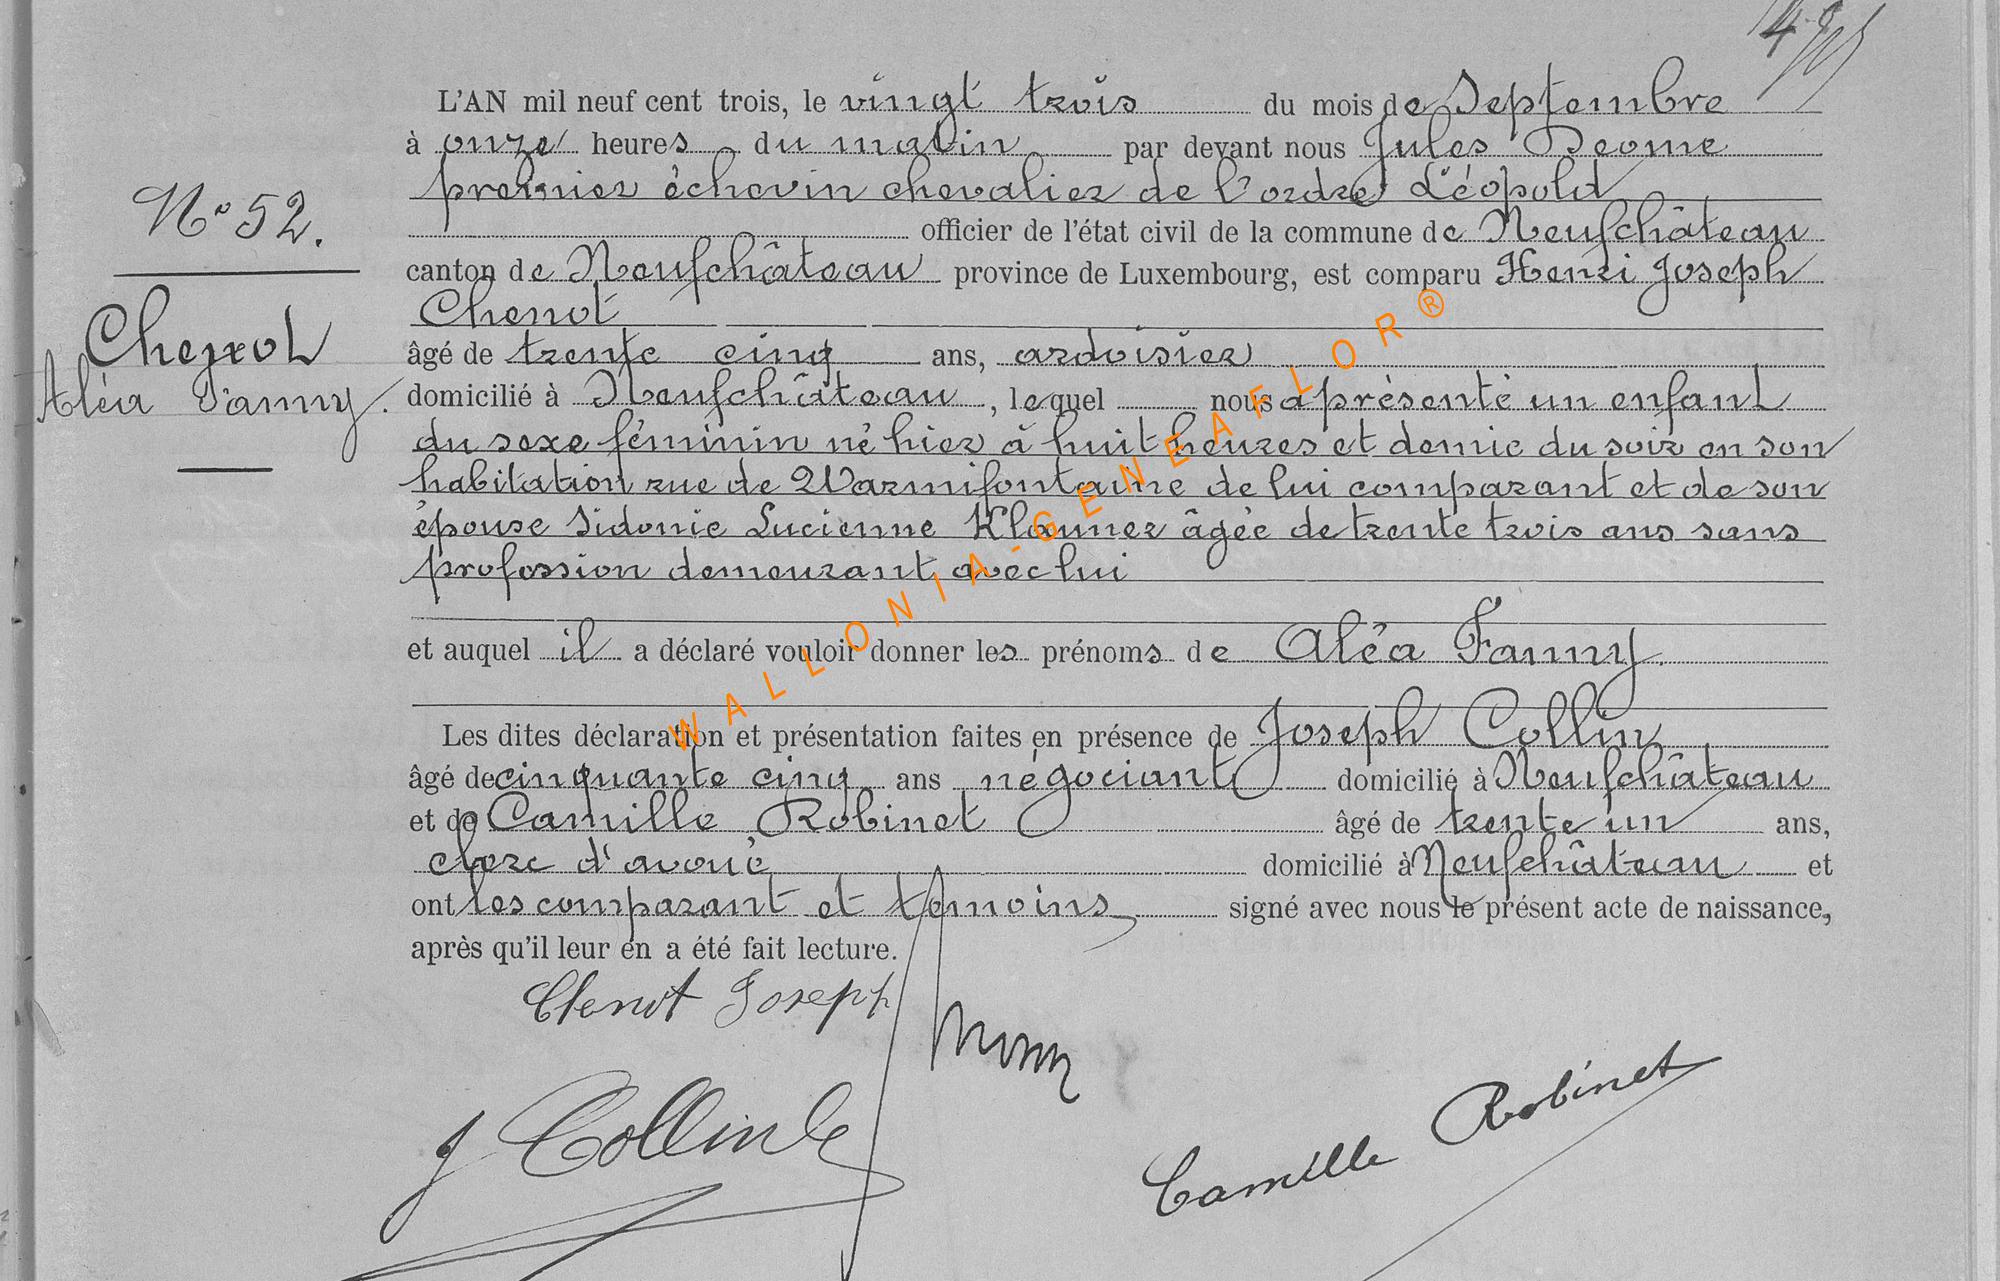 L'AN mil neuf cent trois, le vingt trois du mois de Septembre
à onze heures du matin par devant nous Jules Deome
premier échevin chevalier de l'ordre Léopold
N° 52.
officier de l'état civil de la commune de Neufchâteau
canton de Neufchâteau province de Luxembourg, est comparu Henri Joseph
Chenot
Chenot
âgé de trente cinq ans, ardoisier
Aléa Fanny.
domicilié à Neufchâteau, lequel nous a présenté un enfant
du sexe féminin né hier à huit heures et demie du soir en son
habitation rue de Warmifontaine de lui comparant et de son
épouse Sidonie Lucienne Klauner âgée de trente trois ans sans
profession demeurant avec lui
et auquel il a déclaré vouloir donner les prénoms de Aléa Fanny.
Les dites déclaration et présentation faites en présence de Joseph Collin
âgé de cinquante cinq ans négociant domicilié à Neufchâteau
et de Camille Robinet âgé de trente un ans,
clerc d'avoué domicilié à Neufchâteau et
ont les comparant et témoins signé avec nous le présent acte de naissance,
après qu'il leur en a été fait lecture.
Chenot Joseph
J Collin
Camille Robinet
WALLONIA-GENEAFLOR®